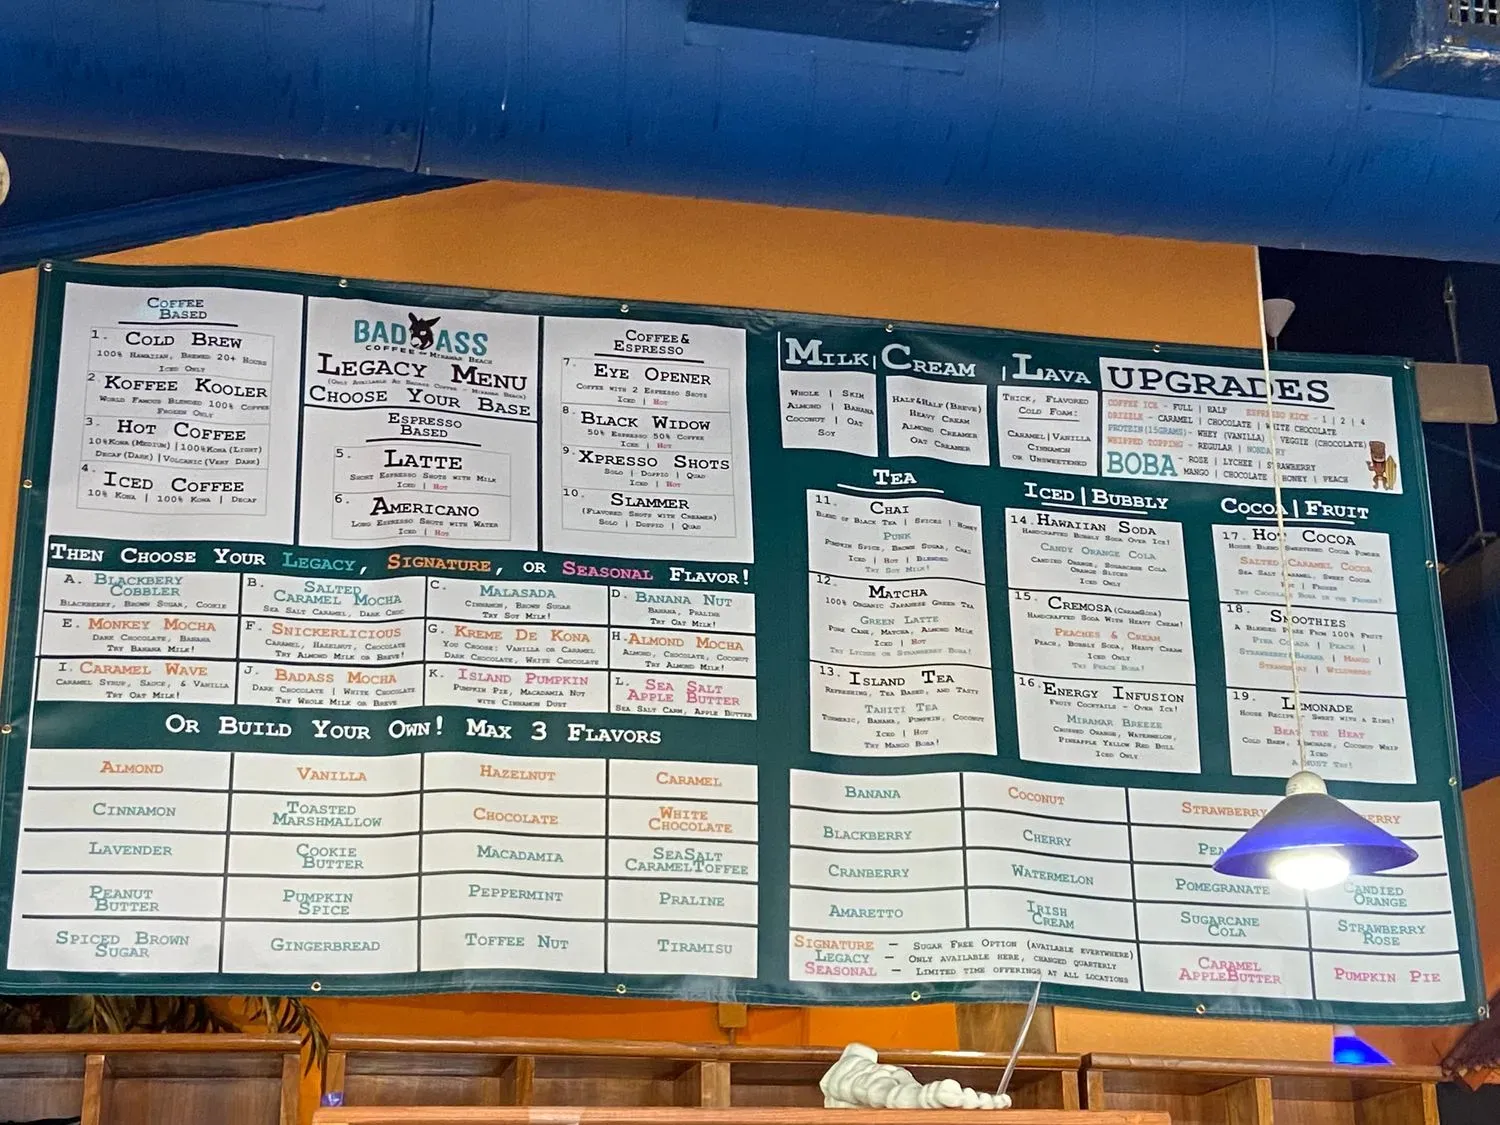 Coffee
Based
1. Cold Brew
100% Hawaiian, Brewed 20+ Hours
Iced Only
2. Koffee Kooler
World Famous Blended 100% Coffee
Frozen Only
3. Hot Coffee
10%Kona(Medium)|100%Kona(Light)
Decaf(Dark)|Volcanic(Very Dark)
4. Iced Coffee
10% Kona | 100% Kona | Decaf
BAD ASS
COFFEE of Miramar Beach
Legacy Menu
(Only Available At Badass Coffee - Miramar Beach)
Choose Your Base
Espresso
Based
5. Latte
Short Espresso Shots with Milk
Iced | Hot
6. Americano
Long Espresso Shots with Water
Iced | Hot
Coffee&
Espresso
7. Eye Opener
Coffee with 2 Espresso Shots
Iced | Hot
8. Black Widow
50% Espresso 50% Coffee
Iced | Hot
9. Xpresso Shots
Solo | Doppio | Quad
Iced | Hot
10. Slammer
(Flavored Shots with Creamer)
Solo | Doppio | Quad
Then Choose Your Legacy, Signature, or Seasonal Flavor!
A. Blackbery
Cobbler
Blackberry, Brown Sugar, Cookie
B. Salted
Caramel Mocha
Sea Salt Caramel, Dark Choc
C. Malasada
Cinnamon, Brown Sugar
Try Soy Milk!
D. Banana Nut
Banana, Praline
Try Oat Milk!
E. Monkey Mocha
Dark Chocolate, Banana
Try Banana Milk!
F. Snickerlicious
Caramel, Hazelnut, Chocolate
Try Almond Milk or Breve!
G. Kreme De Kona
You Choose: Vanilla or Caramel
Dark Chocolate, White Chocolate
H. Almond Mocha
Almond, Chocolate, Coconut
Try Almond Milk!
I. Caramel Wave
Caramel Syrup, Sauce, & Vanilla
Try Oat Milk!
J. Badass Mocha
Dark Chocolate | White Chocolate
Try Whole Milk or Breve
K. Island Pumpkin
Pumpkin Pie, Macadamia Nut
with Cinnamon Dust
L. Sea Salt
Apple Butter
Sea Salt Carm, Apple Butter
Or Build Your Own! Max 3 Flavors
Almond
Vanilla
Hazelnut
Caramel
Cinnamon
Toasted
Marshmallow
Chocolate
White
Chocolate
Lavender
Cookie
Butter
Macadamia
SeaSalt
CaramelToffee
Peanut
Butter
Pumpkin
Spice
Peppermint
Praline
Spiced Brown
Sugar
Gingerbread
Toffee Nut
Tiramisu
Milk | Cream | Lava
Whole | Skim
Almond | Banana
Coconut | Oat
Soy
Half&Half(Breve)
Heavy Cream
Almond Creamer
Oat Creamer
Thick, Flavored
Cold Foam:
Caramel|Vanilla
Cinnamon
or Unsweetened
UPGRADES
COFFEE ICE - FULL | HALF ESPRESSO KICK - 1 | 2 | 4
DRIZZLE - CARAMEL | CHOCOLATE | WHITE CHOCOLATE
PROTEIN(15GRAMS)- WHEY (VANILLA) | VEGGIE (CHOCOLATE)
WHIPPED TOPPING - REGULAR | NONDAIRY
BOBA - ROSE | LYCHEE | STRAWBERRY
MANGO | CHOCOLATE | HONEY | PEACH
Tea
11. Chai
Blend of Black Tea | Spices | Honey
Punk
Pumpkin Spice, Brown Sugar, Chai
Iced | Hot | Blended
Try Soy Milk!
12. Matcha
100% Organic Japanese Green Tea
Green Latte
Pure Cane, Matcha, Almond Milk
Iced | Hot
Try Lychee or Strawberry Boba!
13. Island Tea
Refreshing, Tea Based, and Tasty
Tahiti Tea
Turmeric, Banana, Pumpkin, Coconut
Iced | Hot
Try Mango Boba!
Iced|Bubbly
14. Hawaiian Soda
Handcrafted Bubbly Soda Over Ice!
Candy Orange Cola
Candied Orange, Sugarcane Cola
Orange Slices
Iced Only
15. Cremosa(CreamSoda)
Handcrafted Soda With Heavy Cream!
Peaches & Cream
Peach, Bubbly Soda, Heavy Cream
Iced Only
Try Peach Boba!
16. Energy Infusion
Fruit Cocktails - Over Ice!
Miramar Breeze
Crushed Orange, Watermelon,
Pineapple Yellow Red Bull
Iced Only
Cocoa|Fruit
17. Hot Cocoa
House Blend Sweetened Cocoa Powder
Salted Caramel Cocoa
Sea Salt Caramel, Sweet Cocoa
| Frozen
Try Chocolate Boba in the Frozen!
18. Smoothies
A Blended Puree From 100% Fruit
Pina Colada | Peach |
Strawberry Banana | Mango |
Strawberry | Wildberry
19. Lemonade
House Recipe - Sweet with a Zing!
Beat the Heat
Cold Brew, Lemonade, Coconut Whip
Iced
A Must Try!
Banana
Coconut
Strawberry
Blackberry
Cherry
Cranberry
Watermelon
Pomegranate
Candied
Orange
Amaretto
Irish
Cream
Sugarcane
Cola
Strawberry
Rose
Signature — Sugar Free Option (available everywhere)
Legacy — Only available here, changed quarterly
Seasonal — Limited time offerings at all locations
Caramel
AppleButter
Pumpkin Pie